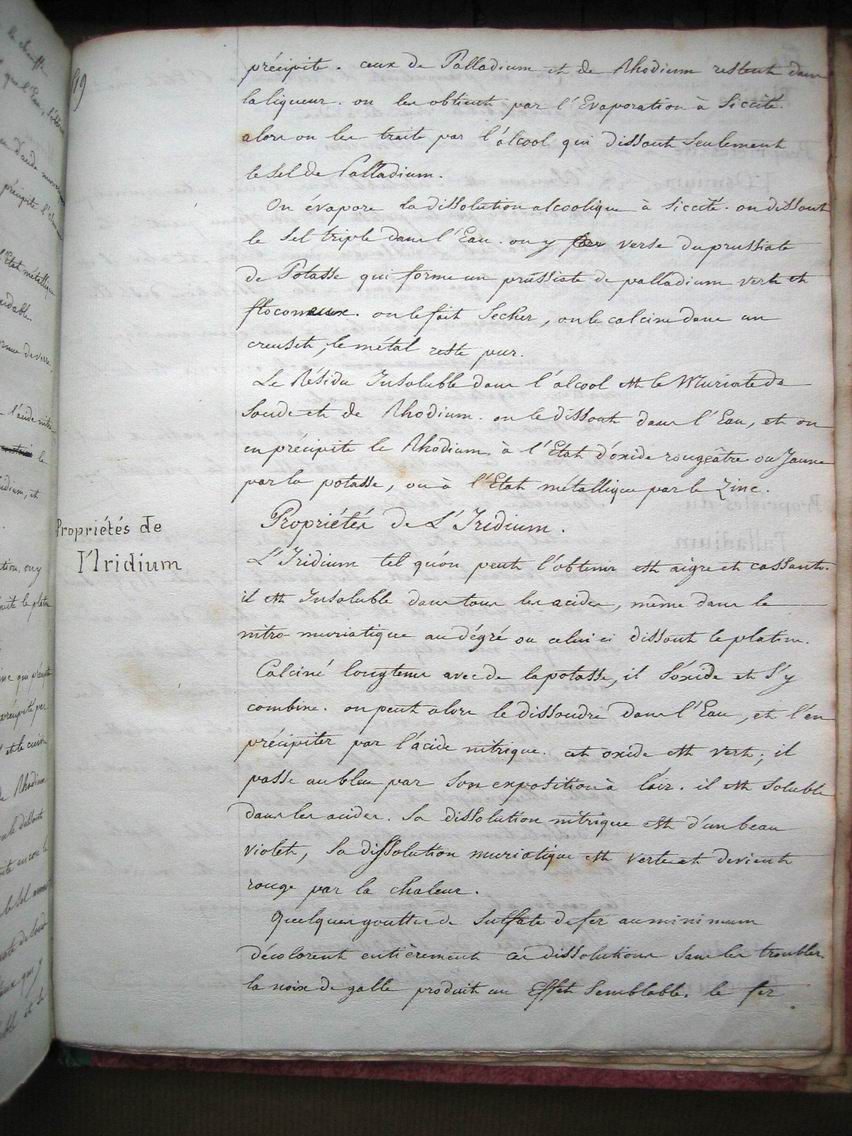 99
précipite. ceux de Palladium et de Rhodium restent dans
la liqueur. on les obtient par l'Evaporation à Siccité.
alors on les traite par l'alcool qui dissout Seulement
le Sel de Palladium.
On évapore la dissolution alcoolique à Siccité. on dissout
le Sel triple dans l'Eau. on y verse du prussiate
de Potasse qui forme un prussiate de palladium vert et
floconneux. on le fait Secher, on le calcine dans un
creuset, le métal reste pur.
Le Résidu Insoluble dans l'alcool est le Muriate de
Soude et de Rhodium. on le dissout dans l'Eau, et on
en précipite le Rhodium. à l'Etat d'oxide rougeâtre ou Jaune
par la potasse, ou à l'Etat métallique par le Zinc.
Propriétés de
l'Iridium
Propriétés de L'Iridium.
L'Iridium tel qu'on peut l'obtenir est aigre et cassant.
il est Insoluble dans tous les acides, même dans le
nitro-muriatique au dégré ou celui ci dissout le platine.
Calciné longtems avec de la potasse, il s'oxide et s'y
combine. on peut alors le dissoudre dans l'Eau, et l'en
précipiter par l'acide nitrique. cet oxide est vert; il
passe au bleu par Son exposition à l'air. il est Soluble
dans les acides. Sa dissolution nitrique est d'un beau
violet, Sa dissolution muriatique est verte et devient
rouge par la chaleur.
Quelques gouttes de Sulfate de fer au minimum
décolorent entièrement ces dissolutions Sans les troubler.
la noix de galle produit un Effet Semblable. le fer